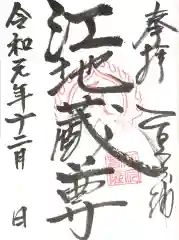 奉拝
江地蔵尊
令和元年十二月 日